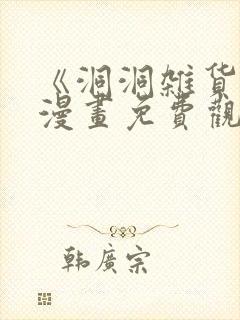 《洞洞雑货
漫畫免費觀
韩廣宗